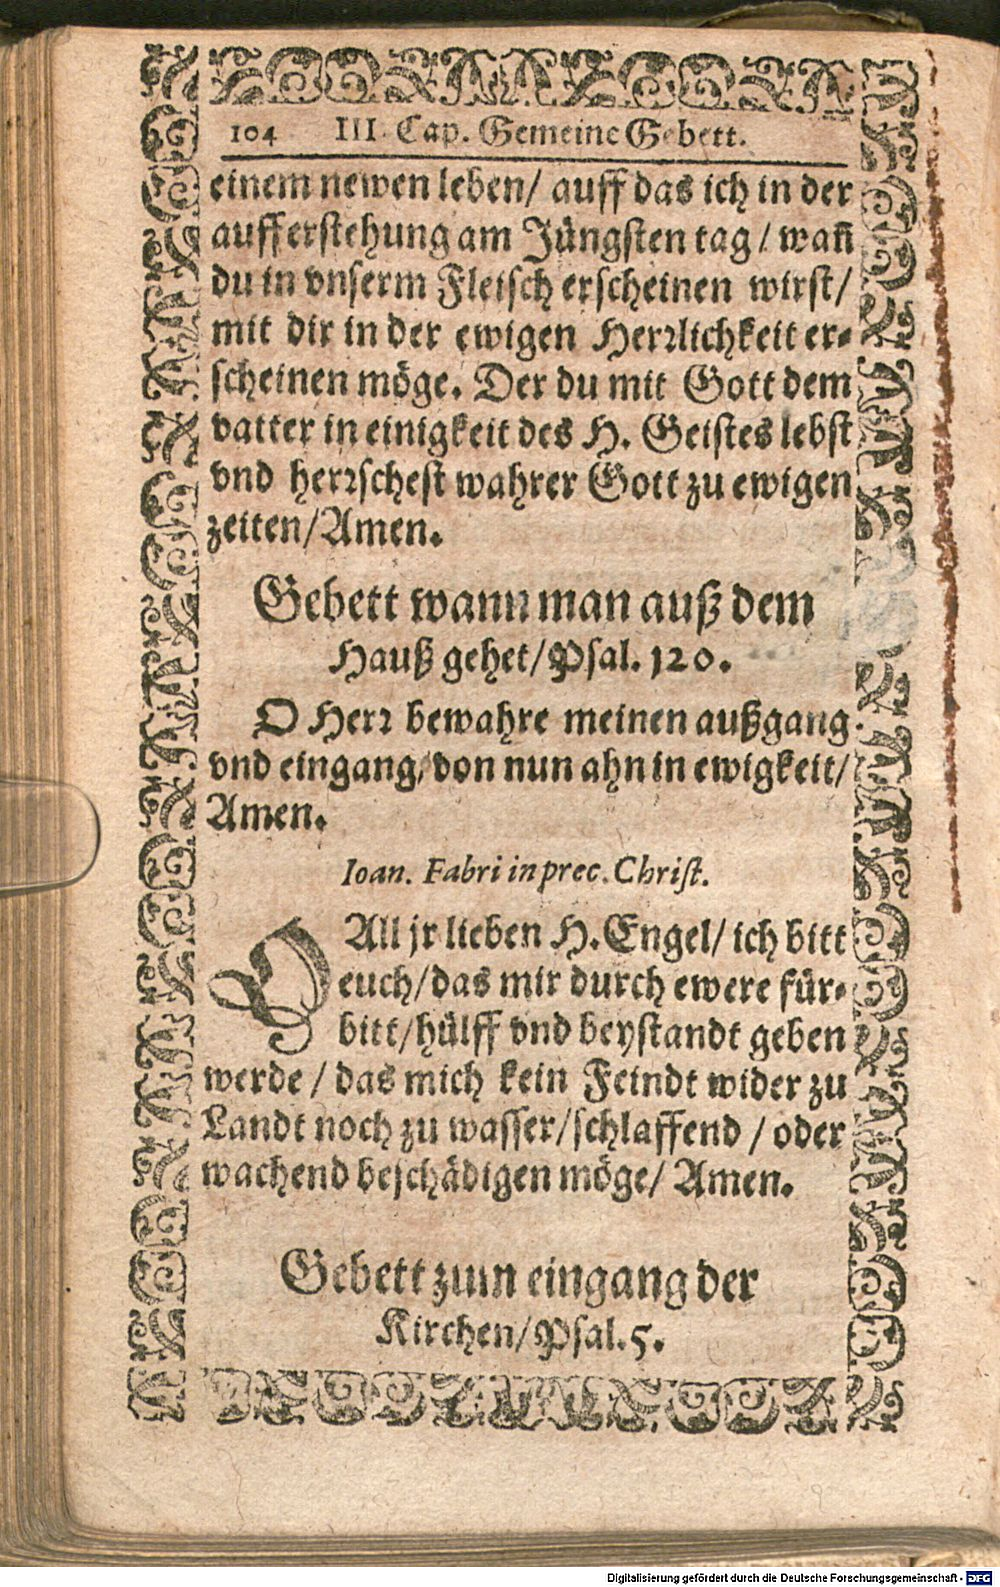 104 III. Cap. Gemeine Gebett.
einem newen leben/ auff das ich in der
aufferstehung am Jüngsten tag/ wañ
du in vnserm Fleisch erscheinen wirst/
mit dir in der ewigen Herrlichkeit er-
scheinen möge. Der du mit Gott dem
vatter in einigkeit des H. Geistes lebst
vnd herrschest wahrer Gott zu ewigen
zeiten/Amen.
Gebett wann man auß dem
Hauß gehet/Psal. 120.
O Herr bewahre meinen außgang
vnd eingang/von nun ahn in ewigkeit/
Amen.
Ioan. Fabri in prec. Christ.
O All jr lieben H. Engel/ ich bitt
euch/das mir durch ewere für-
bitt/hülff vnd beystandt geben
werde/ das mich kein Feindt wider zu
Landt noch zu wasser/schlaffend/ oder
wachend beschädigen möge/ Amen.
Gebett zum eingang der
Kirchen/Psal. 5.
Digitalisierung gefördert durch die Deutsche Forschungsgemeinschaft - DFG